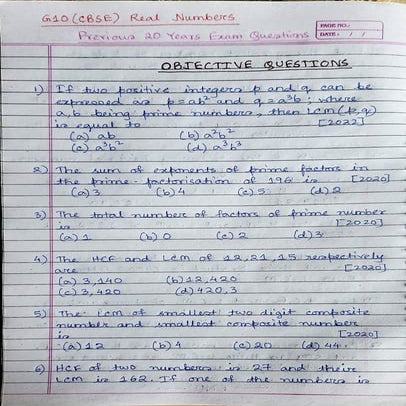 G10 (CBSE) Real Numbers
Previous 20 Years Exam Questions
PAGE NO.:
DATE: / /
OBJECTIVE QUESTIONS
1) If two positive integers p and q can be
expressed as p = ab² and q = a³b ; where
a, b being prime numbers, then LCM (p, q)
is equal to [2022]
(a) ab (b) a²b²
(c) a³b² (d) a³b³
2) The sum of exponents of prime factors in
the prime-factorisation of 196 is [2020]
(a) 3 (b) 4 (c) 5 (d) 2
3) The total number of factors of prime number
is [2020]
(a) 1 (b) 0 (c) 2 (d) 3
4) The HCF and LCM of 12, 21, 15 respectively
are [2020]
(a) 3, 140 (b) 12, 420
(c) 3, 420 (d) 420, 3
5) The LCM of smallest two digit composite
number and smallest composite number
is [2020]
(a) 12 (b) 4 (c) 20 (d) 44
6) HCF of two numbers is 27 and their
LCM is 162. If one of the numbers is